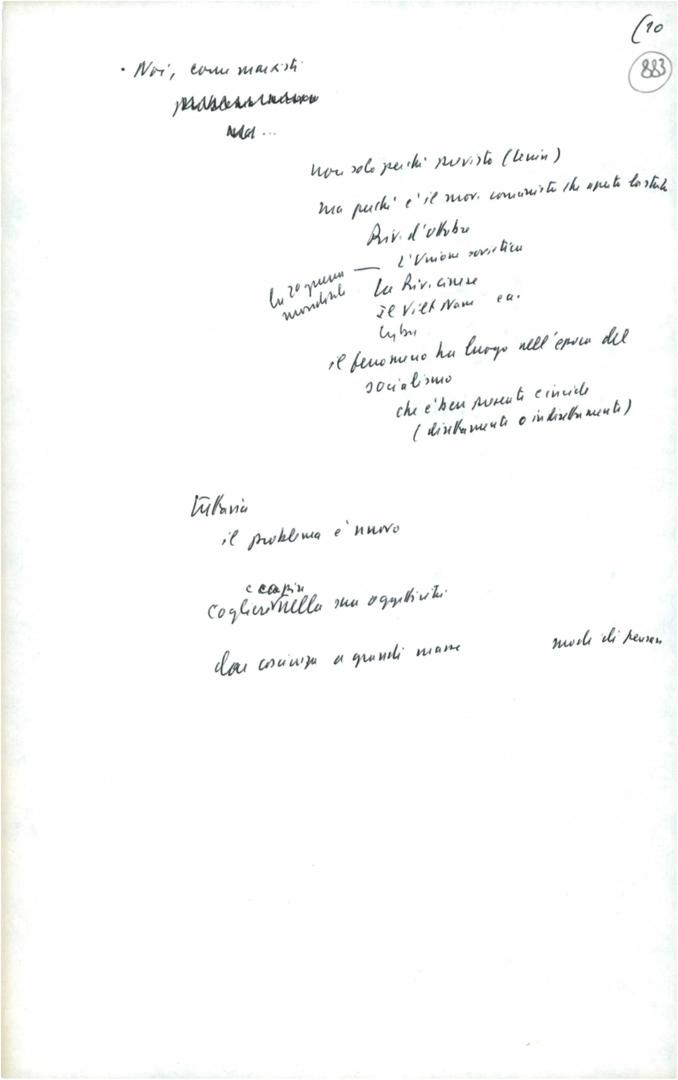 (10
883
· Noi, come marxisti
ma...
non solo perché previsto (Lenin)
ma perché è il mov. comunista che aperto la strada
Riv. d'Ottobre
L'Unione sovietica
la 2a guerra
mondiale
la Riv. cinese
Il Viet Nam ecc.
Cuba
il fenomeno ha luogo nell'epoca del
socialismo
che è ben presente e incide
(direttamente o indirettamente)
Tuttavia
il problema è nuovo
e capire
coglierlo nella sua oggettività
dare coscienza a grandi masse
modi di pensare